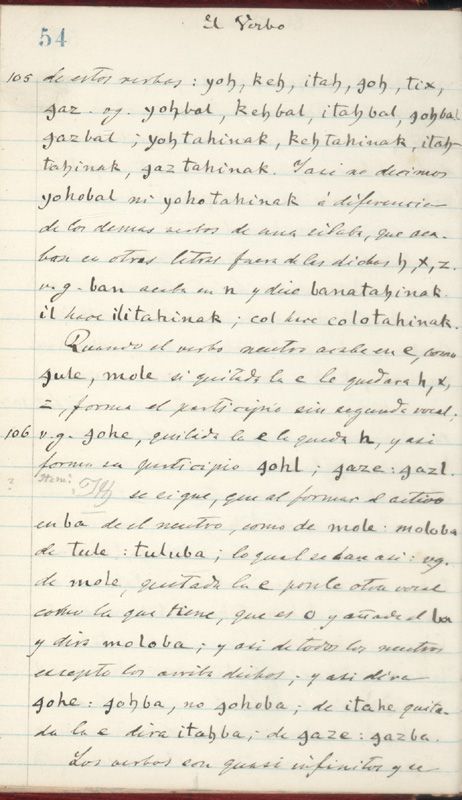 El Verbo
54
105 de estos verbos: yoh, keh, itah, ɡoh, tix,
ɡaz. vg. yohbal, kehbal, itahbal, ɡohbal
ɡazbal; yohtahinak, kehtahinak, itah-
tahinak, ɡaztahinak. Y asi no decimos
yohobal ni yohotahinak á diferencia
de los demas verbos de una silaba, que aca-
ban en otras letras fuera de las dichas h, x, z.
v.g. ban acaba en n y dice banatahinak.
il hace ilitahinak; col hace colotahinak.
Quando el verbo neutro acaba en e, como
ɡule, mole si quitada la e le quedara h, x,
z, forma el participio sin segunda vocal;
106 v.g. ɡohe, quitada la e le queda h, y asi
forma su participio ɡohl; ɡaze: ɡazl.
? Item?
se sigue, que al formar el activo
en ba de el neutro, como de mole: moloba
de tule: tuluba; lo qual se hace asi: vg.
de mole, quitada la e ponle otra vocal
como la que tiene, que es o y añade el ba
y dira moloba; y asi de todos los neutros
excepto los arriba dichos; y asi dira
ɡohe: ɡohba, no ɡohoba; de itahe quita-
da la e dira itahba; de ɡaze: ɡazba.
Los verbos son quasi infinitos y se